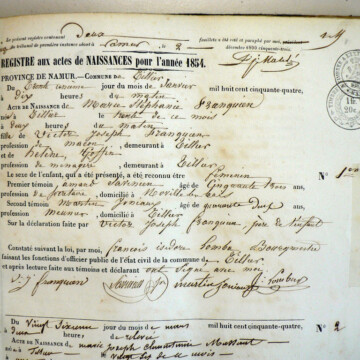 Le présent registre contenant Deux feuillets a été coté et paraphé par moi,
du tribunal de première instance séant à Namur, le 2 décembre 1853 cinquante-trois.
REGISTRE aux actes de NAISSANCES pour l'année 1854.
PROVINCE DE NAMUR. — COMMUNE DE Tillar
Du trente unième jour du mois de Janvier mil huit cent cinquante-quatre,
à Dix heures du matin
ACTE DE NAISSANCE de Marie Stéphanie Franquen
à Tillar le trente de ce mois
à Deux heures du matin
fille de Victor Joseph Franquen
profession de maçon, demeurant à Tillar
et de Hélène Goffin
profession de ménagère, demeurant à Tillar
Le sexe de l'enfant, qui a été présenté, a été reconnu être Féminin
Premier témoin, amand âgé de Cinquante trois ans,
profession de domicilié à Noville les bois
Second témoin Martin Joniaux âgé de quarante Sept ans,
profession meunier, domicilié à Tillar
Sur la déclaration faite par Victor Joseph Franquen, père de l'enfant
Constaté suivant la loi, par moi, françois isidore Lombu Bourgmestre
faisant les fonctions d'officier public de l'état civil de la commune de Tillar
et après lecture faite aux témoins et déclarant ont signé avec moi
V J franquen martin Joniaux
N° 1
Du Vingt Sixième jour du mois de mars mil huit cent cinquante-quatre,
à Deux heures de relevée
ACTE DE NAISSANCE de marie Joseph
N° 2